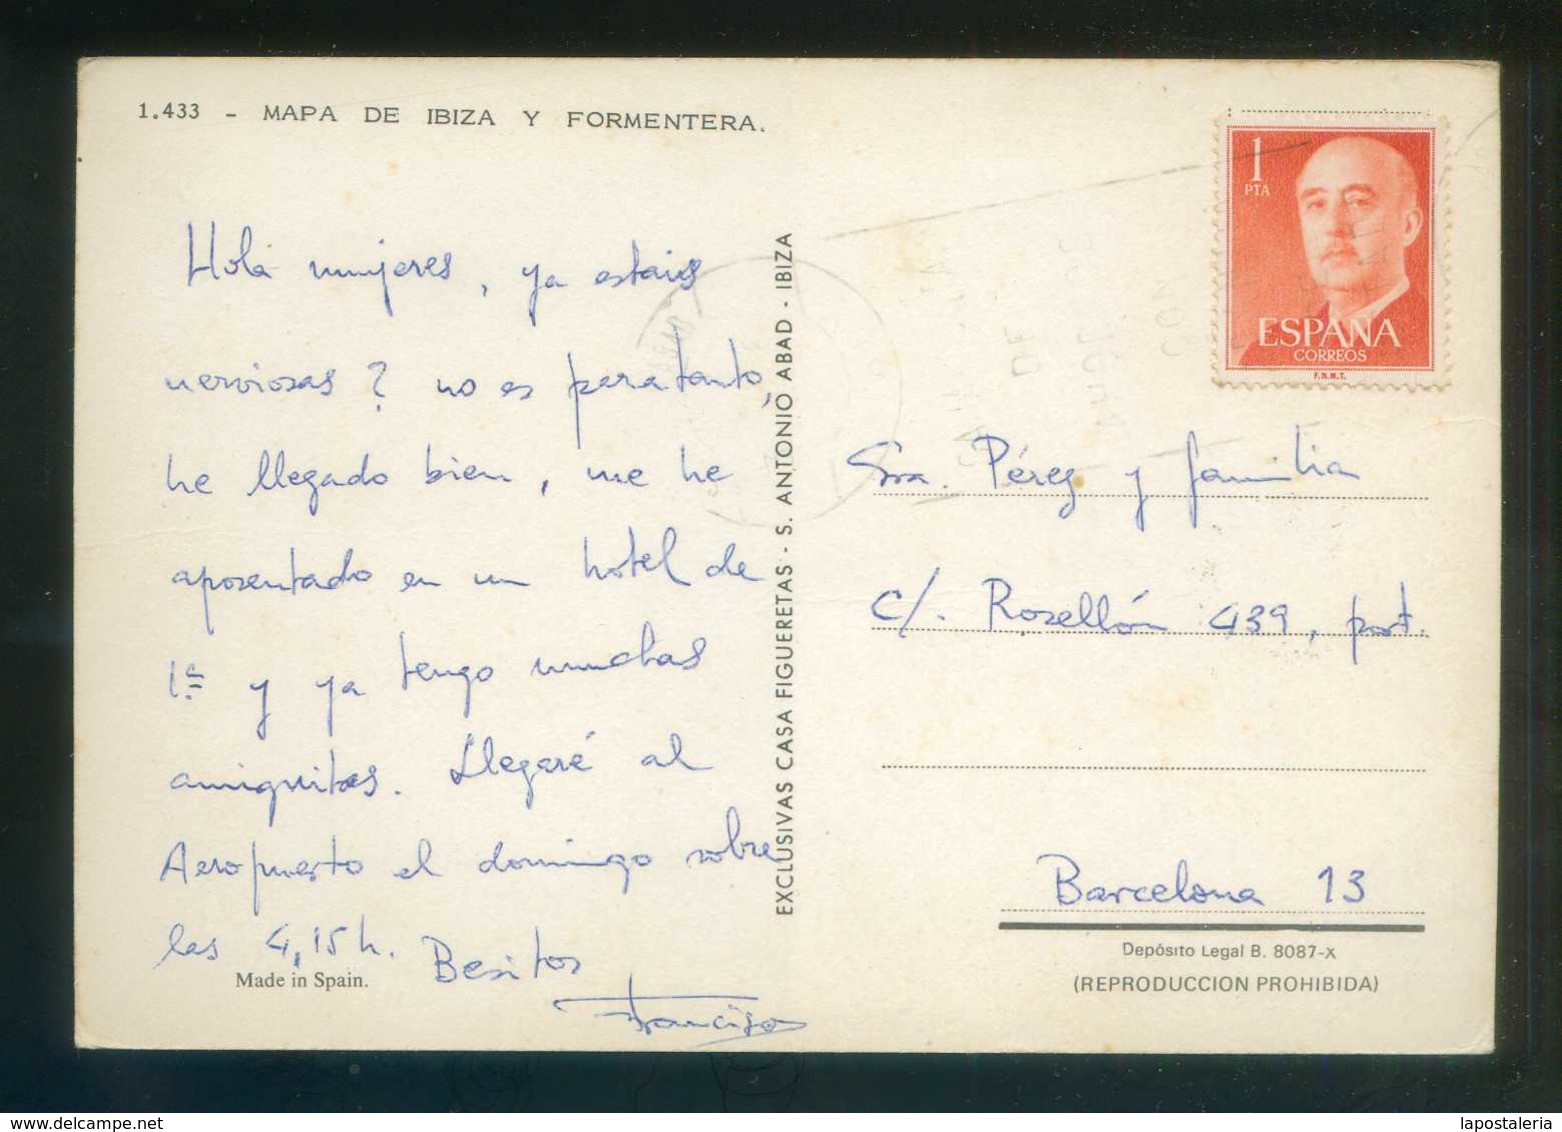 1.433 - MAPA DE IBIZA Y FORMENTERA.
Hola mujeres, ya estais
nerviosas? no es para tanto,
he llegado bien, me he
aposentado en un hotel de
1ª y ya tengo muchas
amiguitas. Llegaré al
Aeropuerto el domingo sobre
las 4,15 h. Besitos
Francisco
Made in Spain.
EXCLUSIVAS CASA FIGUERETAS - S. ANTONIO ABAD - IBIZA
1
PTA
ESPAÑA
CORREOS
F.N.M.T.
Sra. Pérez y familia
c/. Rosellón 439, port.
Barcelona 13
Depósito Legal B. 8087-X
(REPRODUCCION PROHIBIDA)
lapostaleria